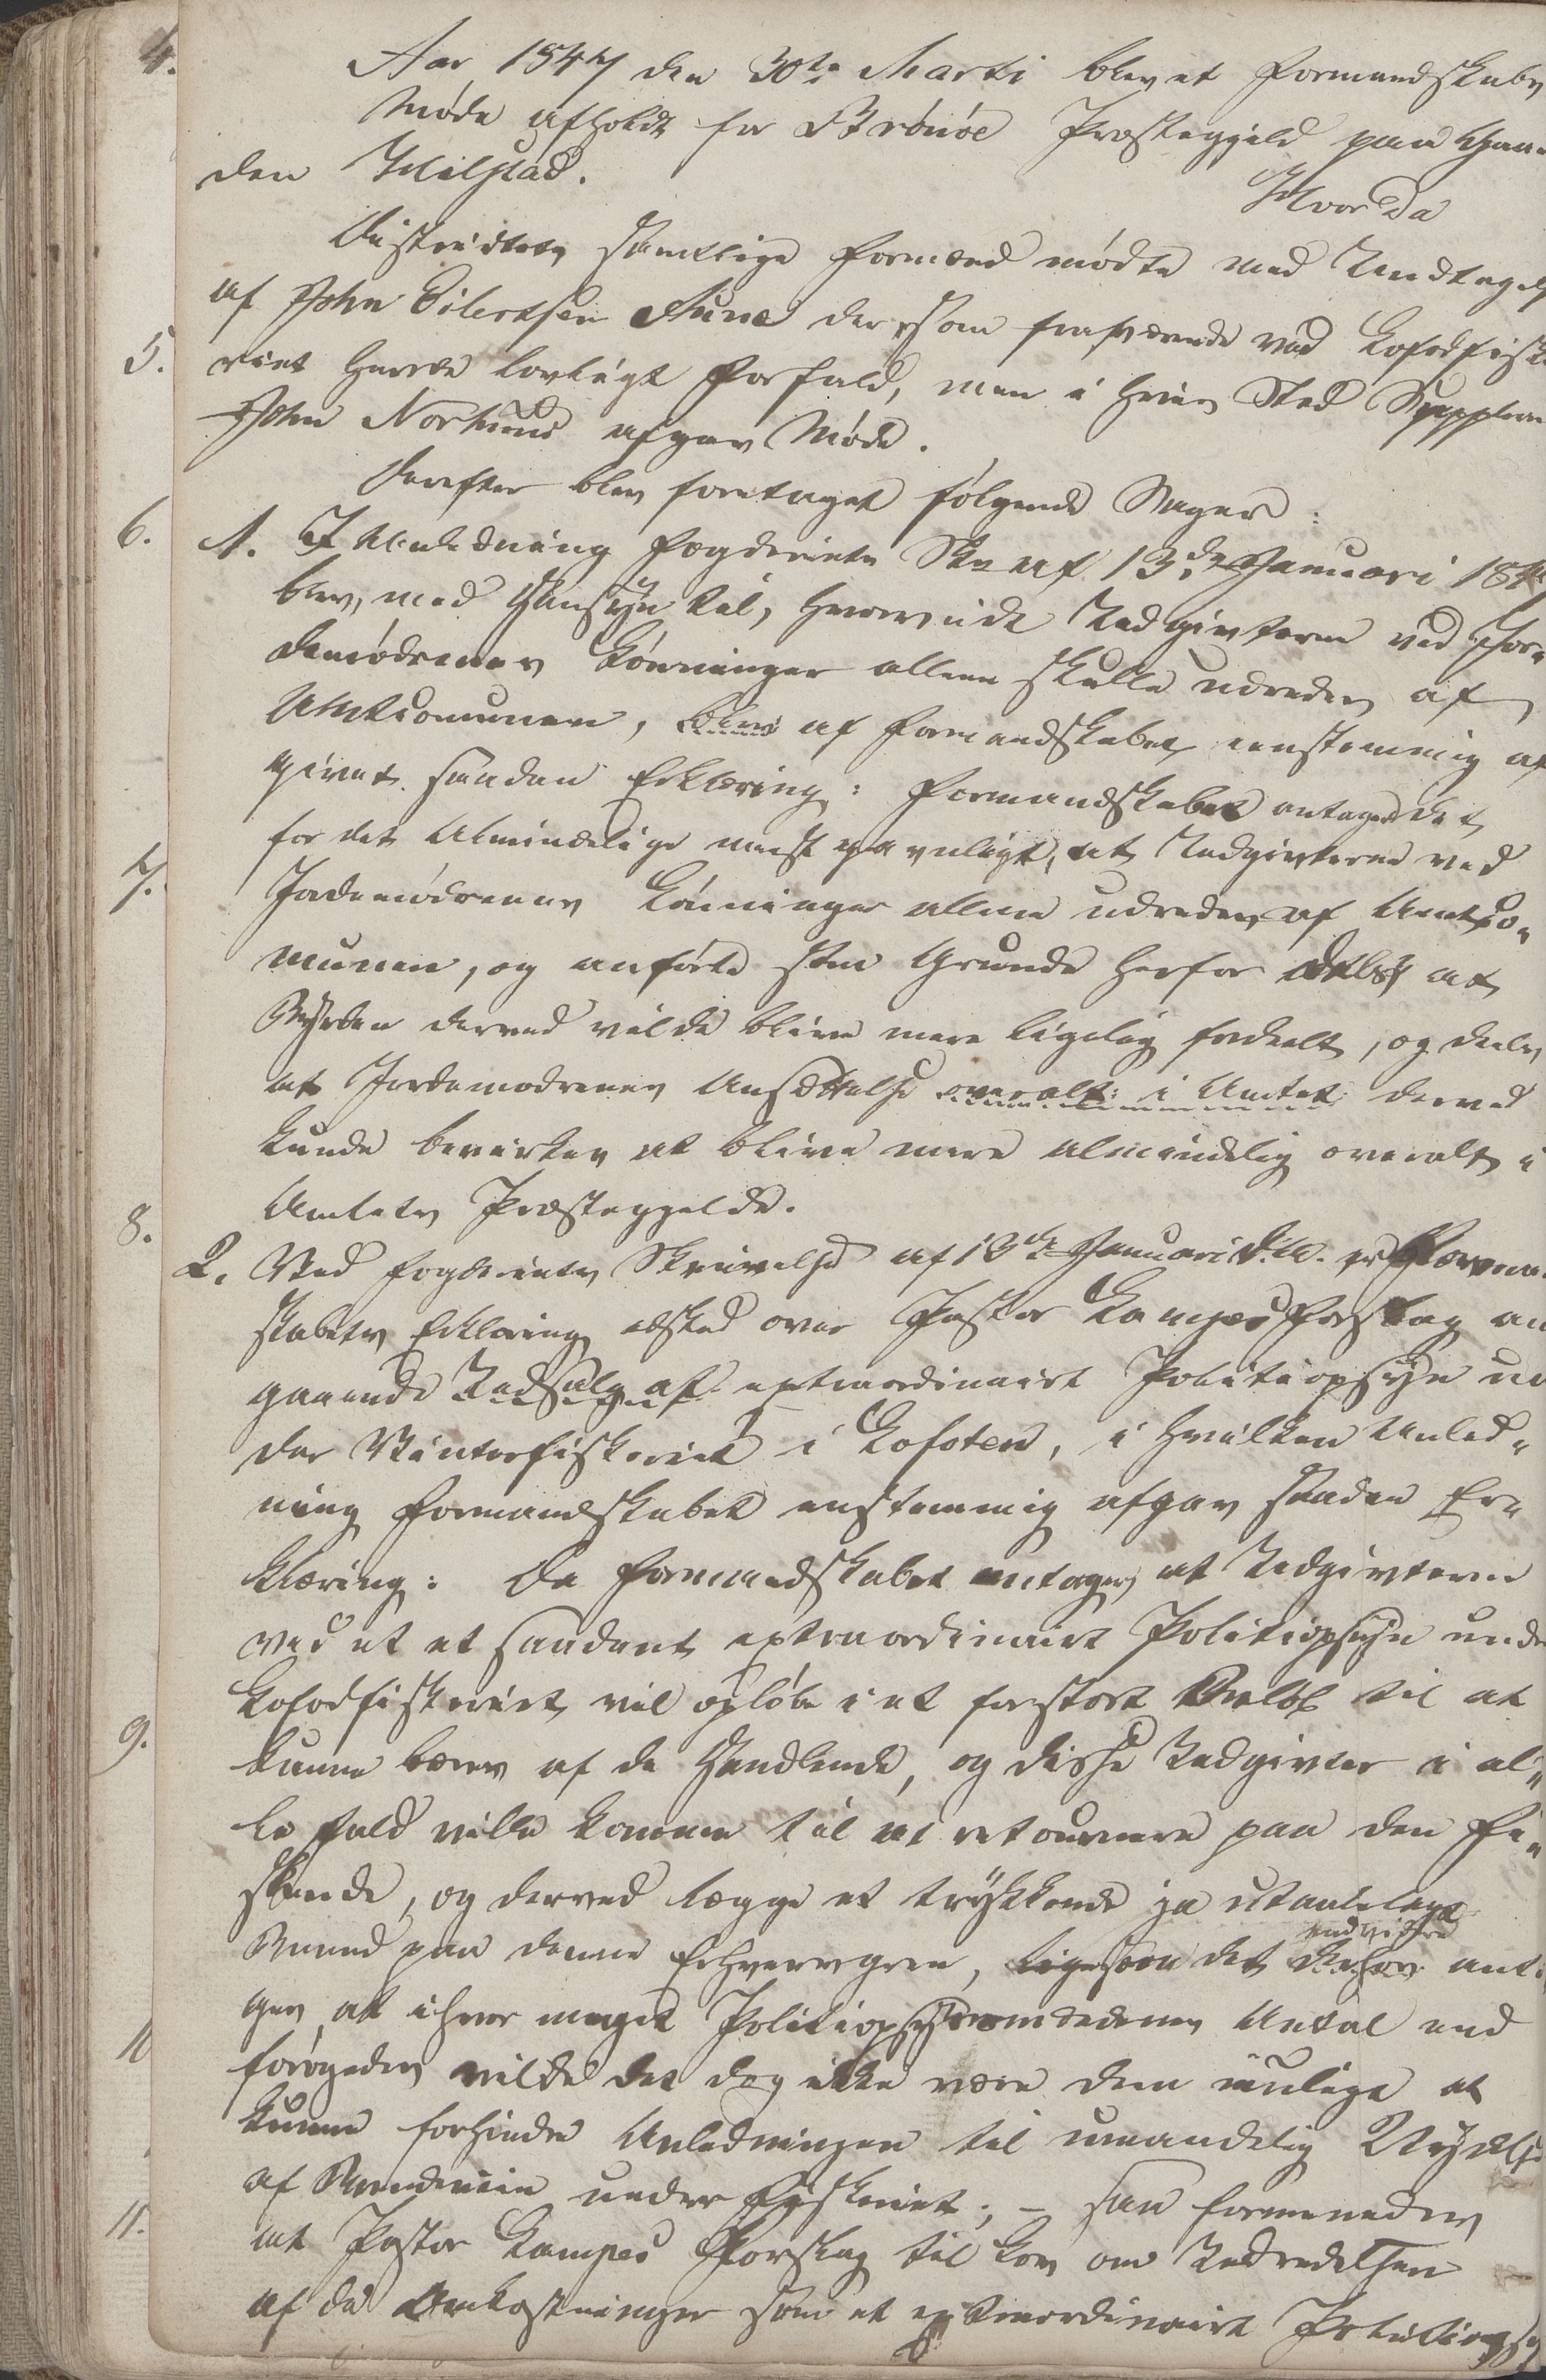 4.
Aar 1847 den 30te Marti blev et Formandskabs
Møde afholdt for Brønøe Præstegjeld paa Gaar-
den Tilstad.
Hvor da
Districtets samtlige Formænd mødte med Undtagelse
af John Eilertsen Aune der som fraværende ved Lofodfiske
5.
riet havde lovligt Forfald, men i hvis Sted Supplean
John Norhuus afgav Møde.
Derefter blev foretaget følgende Sager:
6.
1. I Anledning Fogderiets Skr. af 13de Januari 1847
blev, med Hensyn til, hvorvidt Udgivterne ved Jor-
demødrenes Lønninger allene skulle udredes af
Amtscomunen, blev af Formandskabet eenstemmig af
givet saadan Erklæring: Formandskabet antager det
for det Almindelige meest gavnligt, at Udgivterne ved
7.
Jordemødrenes Lønninger allene udredes af Amtsco-
munen, og anførte som Grunde herfor deels at
Byrden derved vilde blive mere ligelig fordeelt, og deels
at Jordemødrenes Ansættelse overalt i Amtet derved
kunde bevirkes at blive mere almindelig overalt i
Amtets Præstegjelde.
8.
2. Ved Fogderiets Skrivelse af 13de Januari d.A. er Forman
skabets Erklæring æsket over Pastor Kampes Forslag an
gaaende Udsalg af extraordinairt Politiopsyn un
der Vinterfiskeriet i Lofoten, i hvilken Anled-
ning Formandskabet enstemmig afgav saadan Er-
klæring: Da Formandskabet antager at Udgivterne
ved et et saadant extraordinairt Politiopsyn unde
Lofodfiskeriet vil opløbe i et forstort Beløb til at
9.
kunne bæres af de Handlende, og disse Udgivter i al-
le Fald ville komme til at retournere paa den Fi-
skende, og derved lægge et trykkende ja utaaleligt
endvidre
Baand paa denne Erhvervsgren, ligesom det derhos anta
ges, at ihvor meget Politiopsynsmændenes Antal end
10
forøgedes vilde det dog ikke være dem muligt at
kunne forhindre Anledningen til umaadelig Nydelse
af Brændeviin under Fiskeriet; – saa formenedes
11.
at Pastor Kampes Forslag til Lov om Udredelsen
af de Omkostninger som et extraordinairt Politiopsy